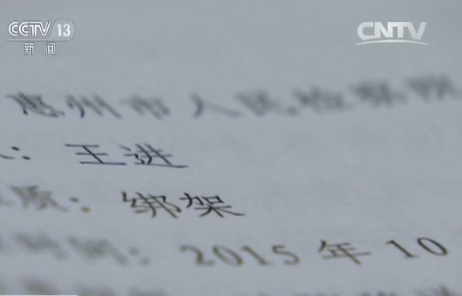 CCTV 13
新闻
CNTV
惠州市人民检察院
：王进
质：绑架
时间：2015年10